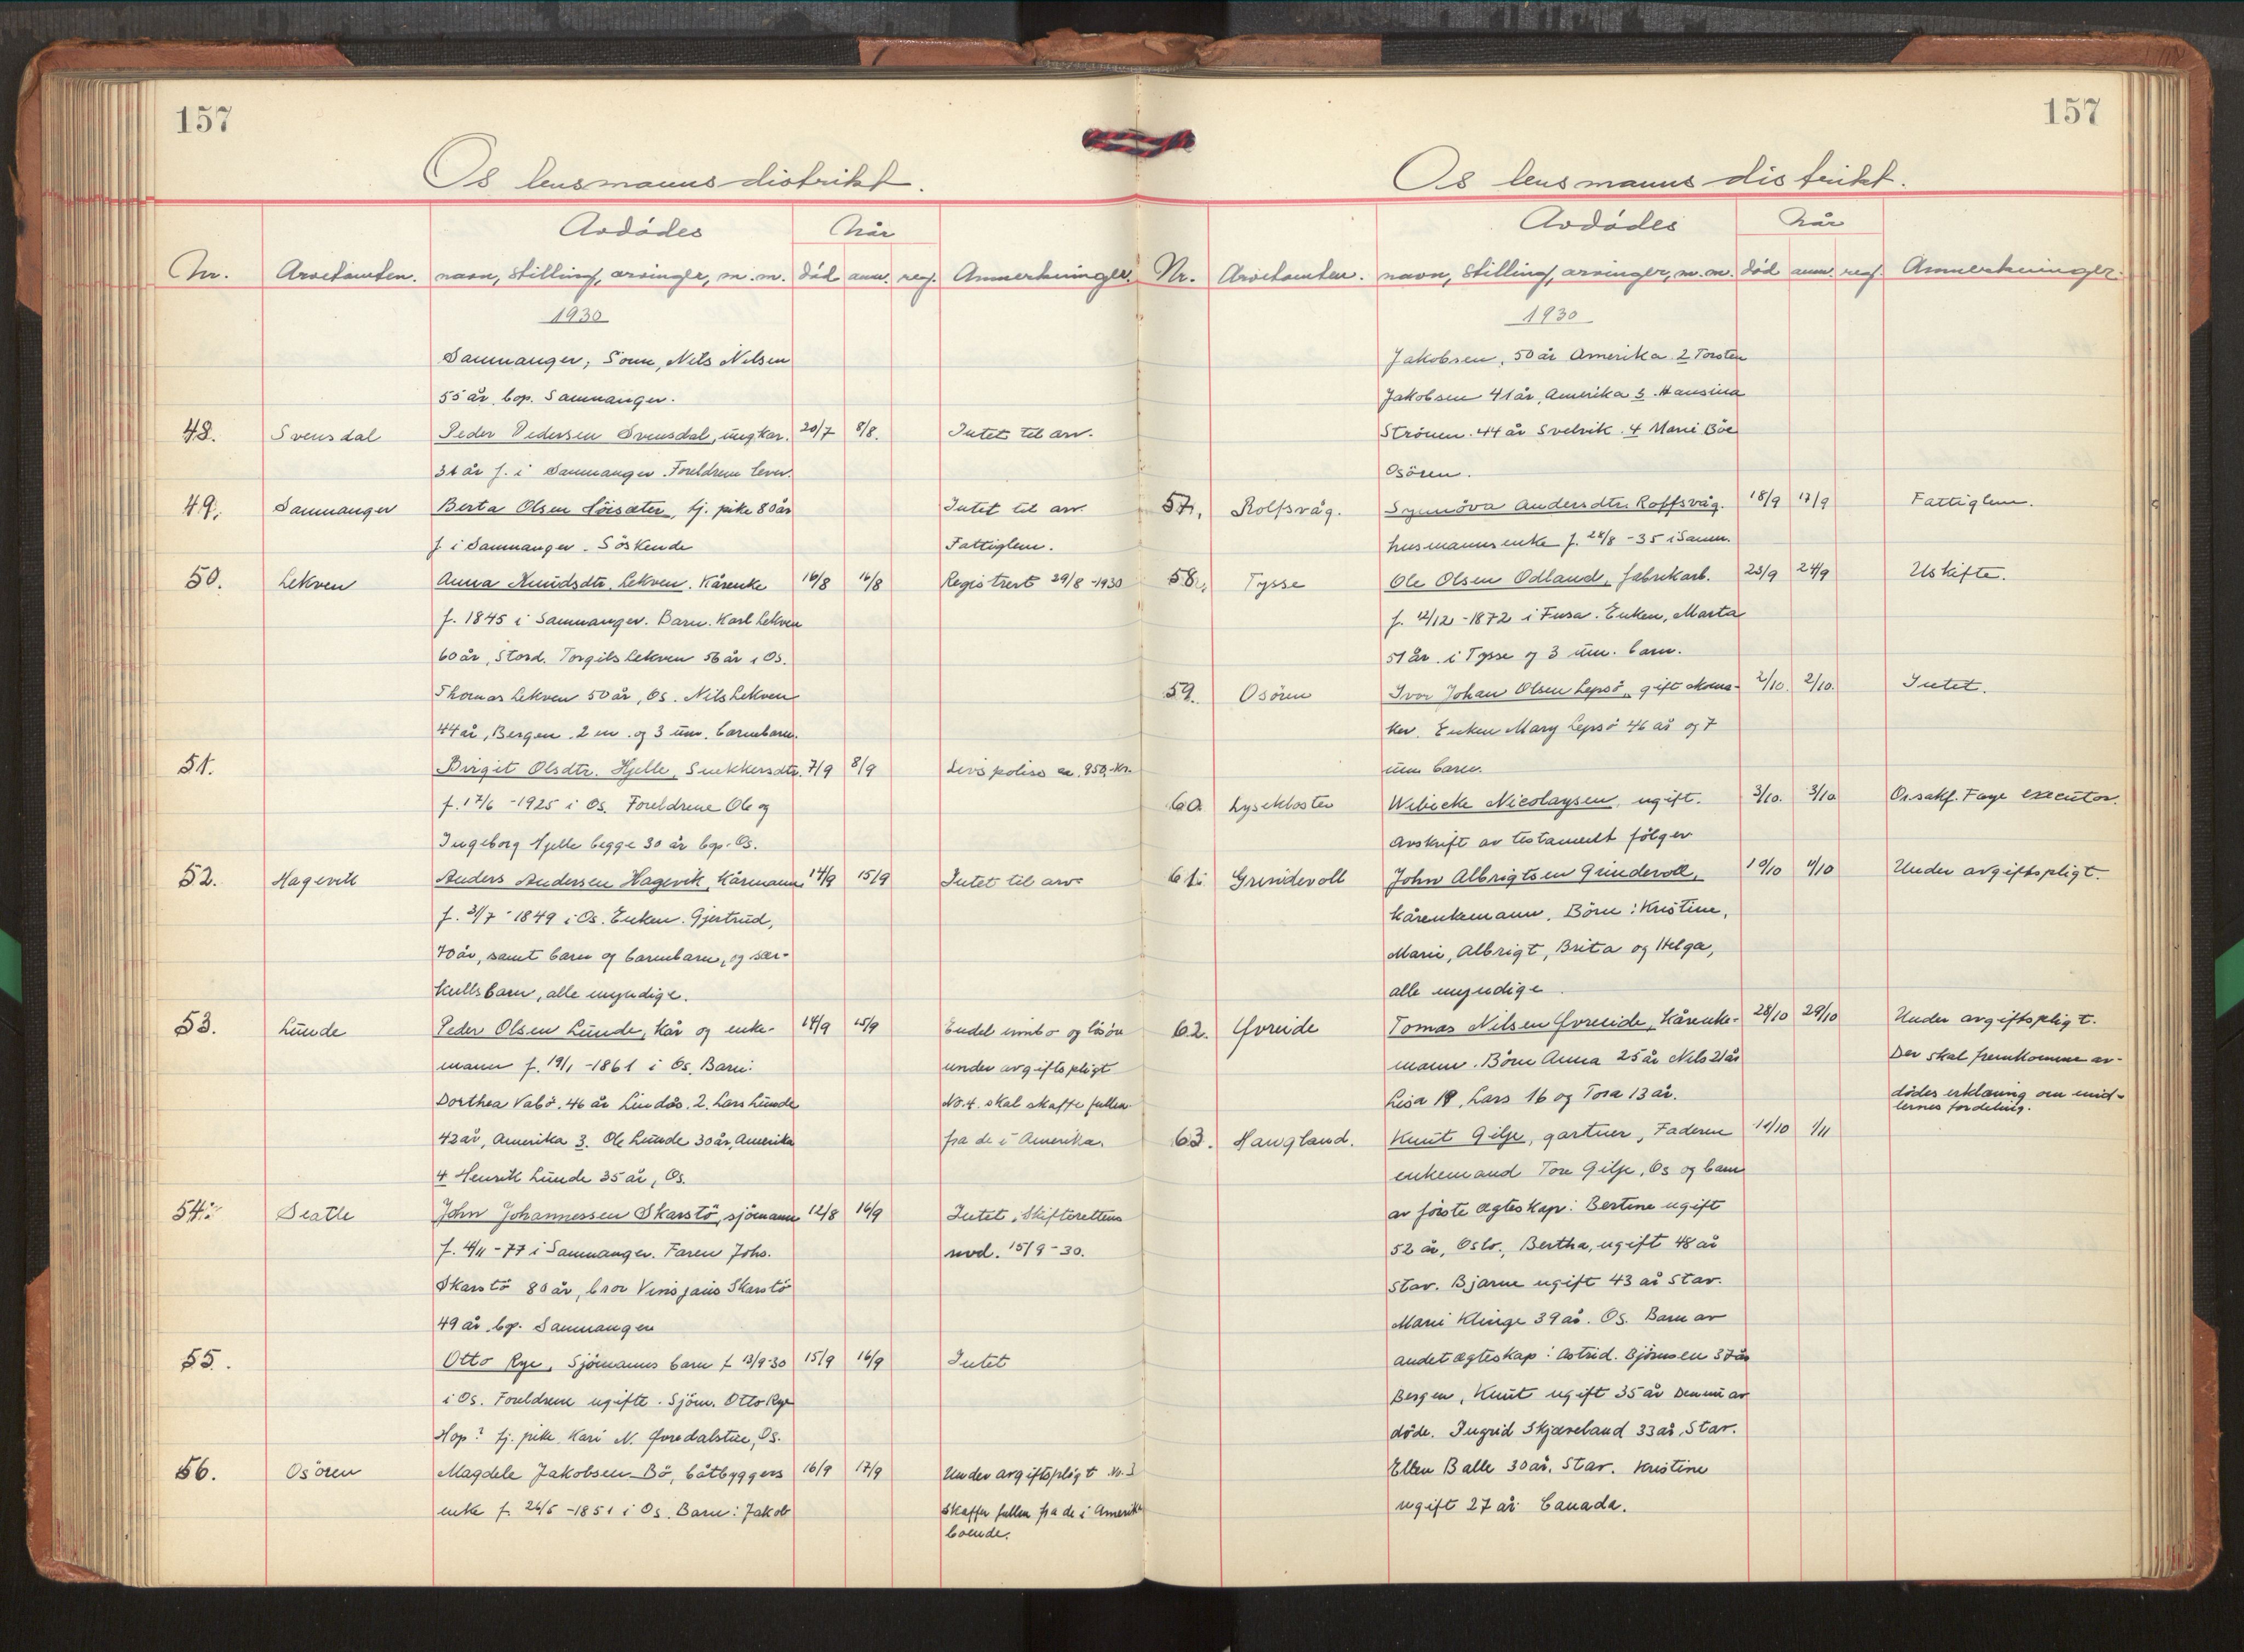 157
Os lensmannsdistrikt.
Avdødes
Når
Nr. Arvetomten. navn, stilling, arvinger, m.m. død anm. reg. Anmerkninger.
1930
Samnanger; Sønn, Nils Nilsen
55 år, bop. Samnanger.
48. Svensdal Peder Pedersen Svensdal, ungkar. 20/7 8/8. Intet til arv.
31 år f. i Samnanger. Foreldrene lever.
49. Samnanger Berta Olsen tj. pike 80 år Intet til arv.
f. i Samnanger. Söskende Fattiglem.
50. Lekven Anna Knudsdtr. Lekven. Kårenke 16/8 16/8 Registrert 29/8-1930
f. 1845 i Samnanger. Barn. Karl Lekven
60 år, Stord. Torgils Lekven 56 år i Os.
Thomas Lekven 50 år, Os. Nils Lekven
44 år, Bergen. 2 m. og 3 um. barnebarn.
51. Birgit Olsdtr. Hjelle, Snekkersdtr. 7/9 8/9 Livs polise ca. 950,- kr.
f. 17/6-1925 i Os. Foreldrene Ole og
Ingeborg Hjelle begge 30 år bop. Os.
52. Hagevik Anders Andersen Hagevik, Kårmann 14/9 15/9 Intet til arv
f. 31/7-1849 i Os. Enken. Gjertrud,
70 år, samt barn og barnebarn, og sær-
kullsbarn, alle myndige.
53. Lunde Peder Olsen Lunde, Kår og enke- 14/9 15/9 Endel innbo og lösöre
mann f. 19/1-1861 i Os. Barn: under avgiftspligt
Dorthea Valö. 46 år Lindås. 2. Lars Lunde No. 4. skal skaffe fullm.
42 år, Amerika 3. Ole Lunde 30 år, Amerika fra de i Amerika.
4 Henrik Lunde 35 år, Os.
54. Seatle John Johannessen Skarstö, sjömann 12/8 16/9 Intet. Skifterettens
f. 4/11-77 i Samnanger. Faren Johs. 15/9-30.
Skarstö 80 år, bror Skarstö
49 år, bop. Samnanger
55. Otto Rye, Sjömanns barn f 13/9-30 15/9 16/9 Intet
i Os. Foreldrene ugifte. Sjöm. Otto Rye
Hop? tj. pike. Kari N. Os.
56. Osören Magdele Jakobsen Bö, båtbyggers 16/9 17/9 Under avgiftspligt
enke f. 26/5-1851 i Os. Barn: Jakob Skaffer fullm fra de i Amerika
boende.
157
Os lensmannsdistrikt.
Avdødes
Når
Nr. Arvetomten. navn, stilling, arvinger, m.m. død anm. reg. Anmerkninger.
1930
Jakobsen, 50 år Amerika. 2 Torsten
Jakobsen 41 år, Amerika 3. Hansina
Strömen. 44 år Svelvik. 4 Marie Böe
Osören.
57. Rolfsvåg. Synnöva Andersdtr. Roffsvåg. 18/9 17/9 Fattiglem.
husmannsenke f. 28/8-35 i Samn.
58. Tysse Ole Olsen Odland, fabrikarb. 23/9 24/9 Uskifte.
f. 12/12-1872 i Fusa. Enken, Marta
51 år. i Tysse og 3 um. barn.
59. Osören Ivar Johan Olsen Lepsö, gift 2/10. 2/10. Intet.
ker. Enken Mary Lepsö 46 år og 7
um barn.
60. Lysekloster Wibicke Nicolaysen, ugift. 3/10. 3/10 O.r.sakf. Faye executor.
Avskrift av testament fölger
61. Grindevoll John Albrigtsen Grindevoll, 10/10 11/10 Under avgiftspligt.
kårenkemann. Börn: Kristine,
Marie, Albrigt, Brita og Helga,
alle myndige.
62. Övreide Tomas Nilsen Övreeide, Kårenke- 28/10 29/10 Under avgiftspligt.
mann. Börn Anna 25 år Nils 21 år Der skal fremkomme av-
Lisa 18, Lars 16 og Tora 13 år. dödes erklæring om mid-
lernes fordeling.
63. Haugland. Knut Gilje, gartner, Faderen 14/10 1/11
enkemand Tore Gilje, Os og barn
av förste ægteskap: Bertine ugift
52 år, Oslo., Bertha, ugift 48 år
Stav. Bjarne ugift 43 år Stav.
Marie Klinge 39 år. Os. Barn av
andet ægteskap: Astrid. Björnsen 37 år
Bergen, Knut ugift 35 år Den nu av
döde. Ingrid Skjæveland 33 år, Stav.
Ellen Balle 30 år, Stav. Kristine
ugift 27 år Canada.